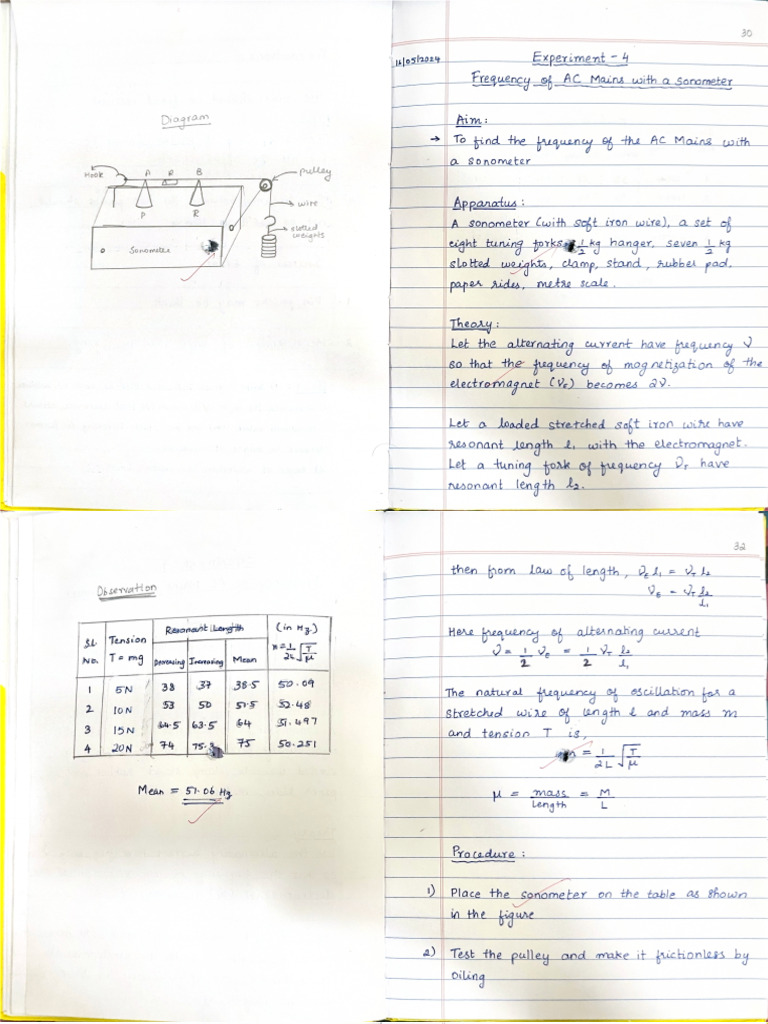 Diagram
Hook
A
R
B
pulley
wire
slotted
weights
P
R
Sonometer
30
16/05/2024
Experiment - 4
Frequency of AC Mains with a sonometer
Aim:
→ To find the frequency of the AC Mains with
a sonometer
Apparatus:
A sonometer (with soft iron wire), a set of
eight tuning forks, 1/2 kg hanger, seven 1/2 kg
slotted weights, clamp, stand, rubber pad,
paper rides, metre scale.
Theory:
Let the alternating current have frequency ν
so that the frequency of magnetization of the
electromagnet (νE) becomes 2ν.
Let a loaded stretched soft iron wire have
resonant length l1 with the electromagnet.
Let a tuning fork of frequency νT have
resonant length l2.
Observation
Sl No. | Tension T = mg | Resonant Length | (in Hz) n = 1/2L √T/μ
Decreasing | Increasing | Mean
1 5N 38 37 38.5 50.09
2 10N 53 50 51.5 52.48
3 15N 64.5 63.5 64 51.497
4 20N 74 75 50.251
Mean = 51.06 Hz
32
then from law of length, νE l1 = νT l2
νE = νT l2/l1
Here frequency of alternating current
ν = 1/2 νE = 1/2 νT l2/l1
The natural frequency of oscillation for a
stretched wire of length l and mass m
and tension T is,
= 1/2L √T/μ
μ = mass/Length = M/L
Procedure:
1) Place the sonometer on the table as shown
in the figure
2) Test the pulley and make it frictionless by
Oiling